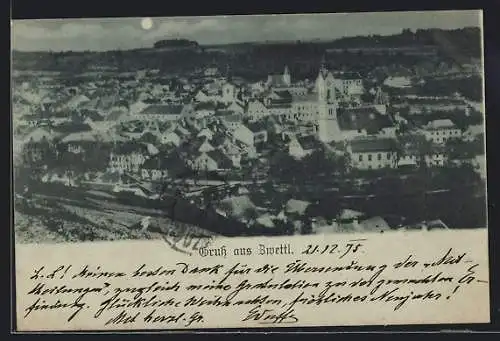 Gruß aus Zwettl. 21.12.98
L. L! Meinen besten Dank für die Übersendung der „Mit-
theilungen", zugleich meine Gratulation zu der gemachten Er-
findung. Glückliche Weihnachten, fröhliches Neujahr!
Mit herzl. Gr.